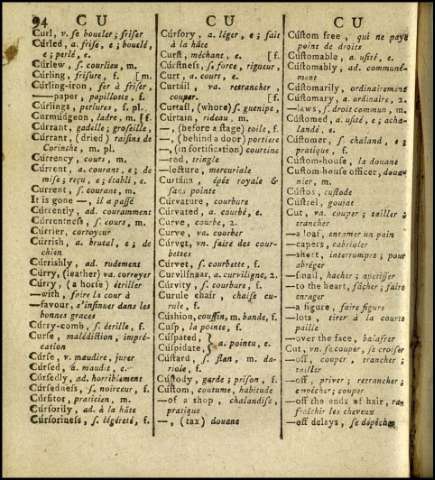 94 C U
C U
C U
Curl, v. se boucler; friser
Cúrled, a. frise, e; bouclé,
e; perlé, e.
Cúrlew, s. courlieu, m.
Cúrling, frisure, f. [m.
Cúrling-iron, fer à friser
—paper, papillotte, f.
Cúrlings, perlures, f. pl.
Curmúdgeon, ladre, m. [f.
Cúrrant, gadelle; groseille,
Cúrrant, (dried) raisins de
Corinthe, m. pl.
Cúrrency, cours, m.
Cúrrent, a. courant, e; de
mise; reçu, e; établi, e.
Cúrrent, s. courant, m.
It is gone —, il a passé
Cúrrently, ad. couramment
Cúrrentness, s. cours, m.
Cúrrier, corroyeur
Cúrrish, a. brutal, e; de
chien
Cúrrishly, ad. rudement
Cúrry, (leather) va. corroyer
Cúrry, (a horse) étriller
—with, faire la cour à
—favour, s'insinuer dans les
bonnes graces
Cúrry-comb, s. étrille, f.
Curse, malédiction, impré-
cation
Cúrse, v. maudire, jurer
Cúrsed, a. maudit, e.
Cúrsedly, ad. horriblement
Cúrsedness, s. noirceur, f.
Cúrsitor, praticien, m.
Cúrsorily, ad. à la hâte
Cúrsoriness, s. légéreté, f.
Cúrsory, a. léger, e; fait
à la hâte
Curst, méchant, e. [f.
Cúrstness, s. force, rigueur,
Curt, a. court, e.
Curtáil, va. retrancher,
couper.
Curtail, (whore) s. guenipe,
Cúrtain, rideau, m.
—, (before a stage) toile, f.
—, (behind a door) portiere
—, (in fortification) courtine
—rod, tringle
—lecture, mercuriale
Curtáins, épée royale &
sans pointe
Cúrvature, courbure
Cúrvated, a. courbé, e.
Curve, courbe, 2.
Curve, va. courber
Cúrvet, vn. faire des cour-
bettes
Cúrvet, s. courbette, f.
Curvilínear, a. curviligne, 2.
Cúrvity, s. courbure, f.
Curule chair, chaise cu-
rule, f.
Cúshion, coussin, m. bande, f.
Cusp, la pointe, f.
Cúspated,
Cúspidate, } a. pointu, e.
Cústard, s. flan, m. da-
riole, f.
Cústody, garde; prison, f.
Cústom, coutume, habitude
—of a shop, chalandise,
pratique
—, (tax) douane
Cústom free, qui ne paye
point de droits
Cústomable, a. usité, e.
Cústomably, ad. communé-
ment
Cústomarily, ordinairement
Cústomary, a. ordinaire, 2.
—laws, s. droit commun, m.
Cústomed, a. usité, e; acha-
landé, e.
Cústomer, s. chaland, e;
pratique, f.
Cústom-house, la douane
Cústom-house officer, doua-
nier, m.
Cústos, custode
Cústrel, goujat
Cut, va. couper; tailler;
trancher
—a loaf, entamer un pain
—capers, cabrioler
—short, interrompre; pour
abréger
—small, hacher; apetisser
—to the heart, fâcher; faire
enrager
—a figure, faire figure
—lots, tirer à la courte
paille
—over the face, balafrer
Cut, vn. se couper, se croiser
—off, couper, trancher;
tailler
—off, priver; retrancher;
empêcher; couper
—off the ends of hair, ra-
fraîchir les cheveux
—off delays, se dépêcher